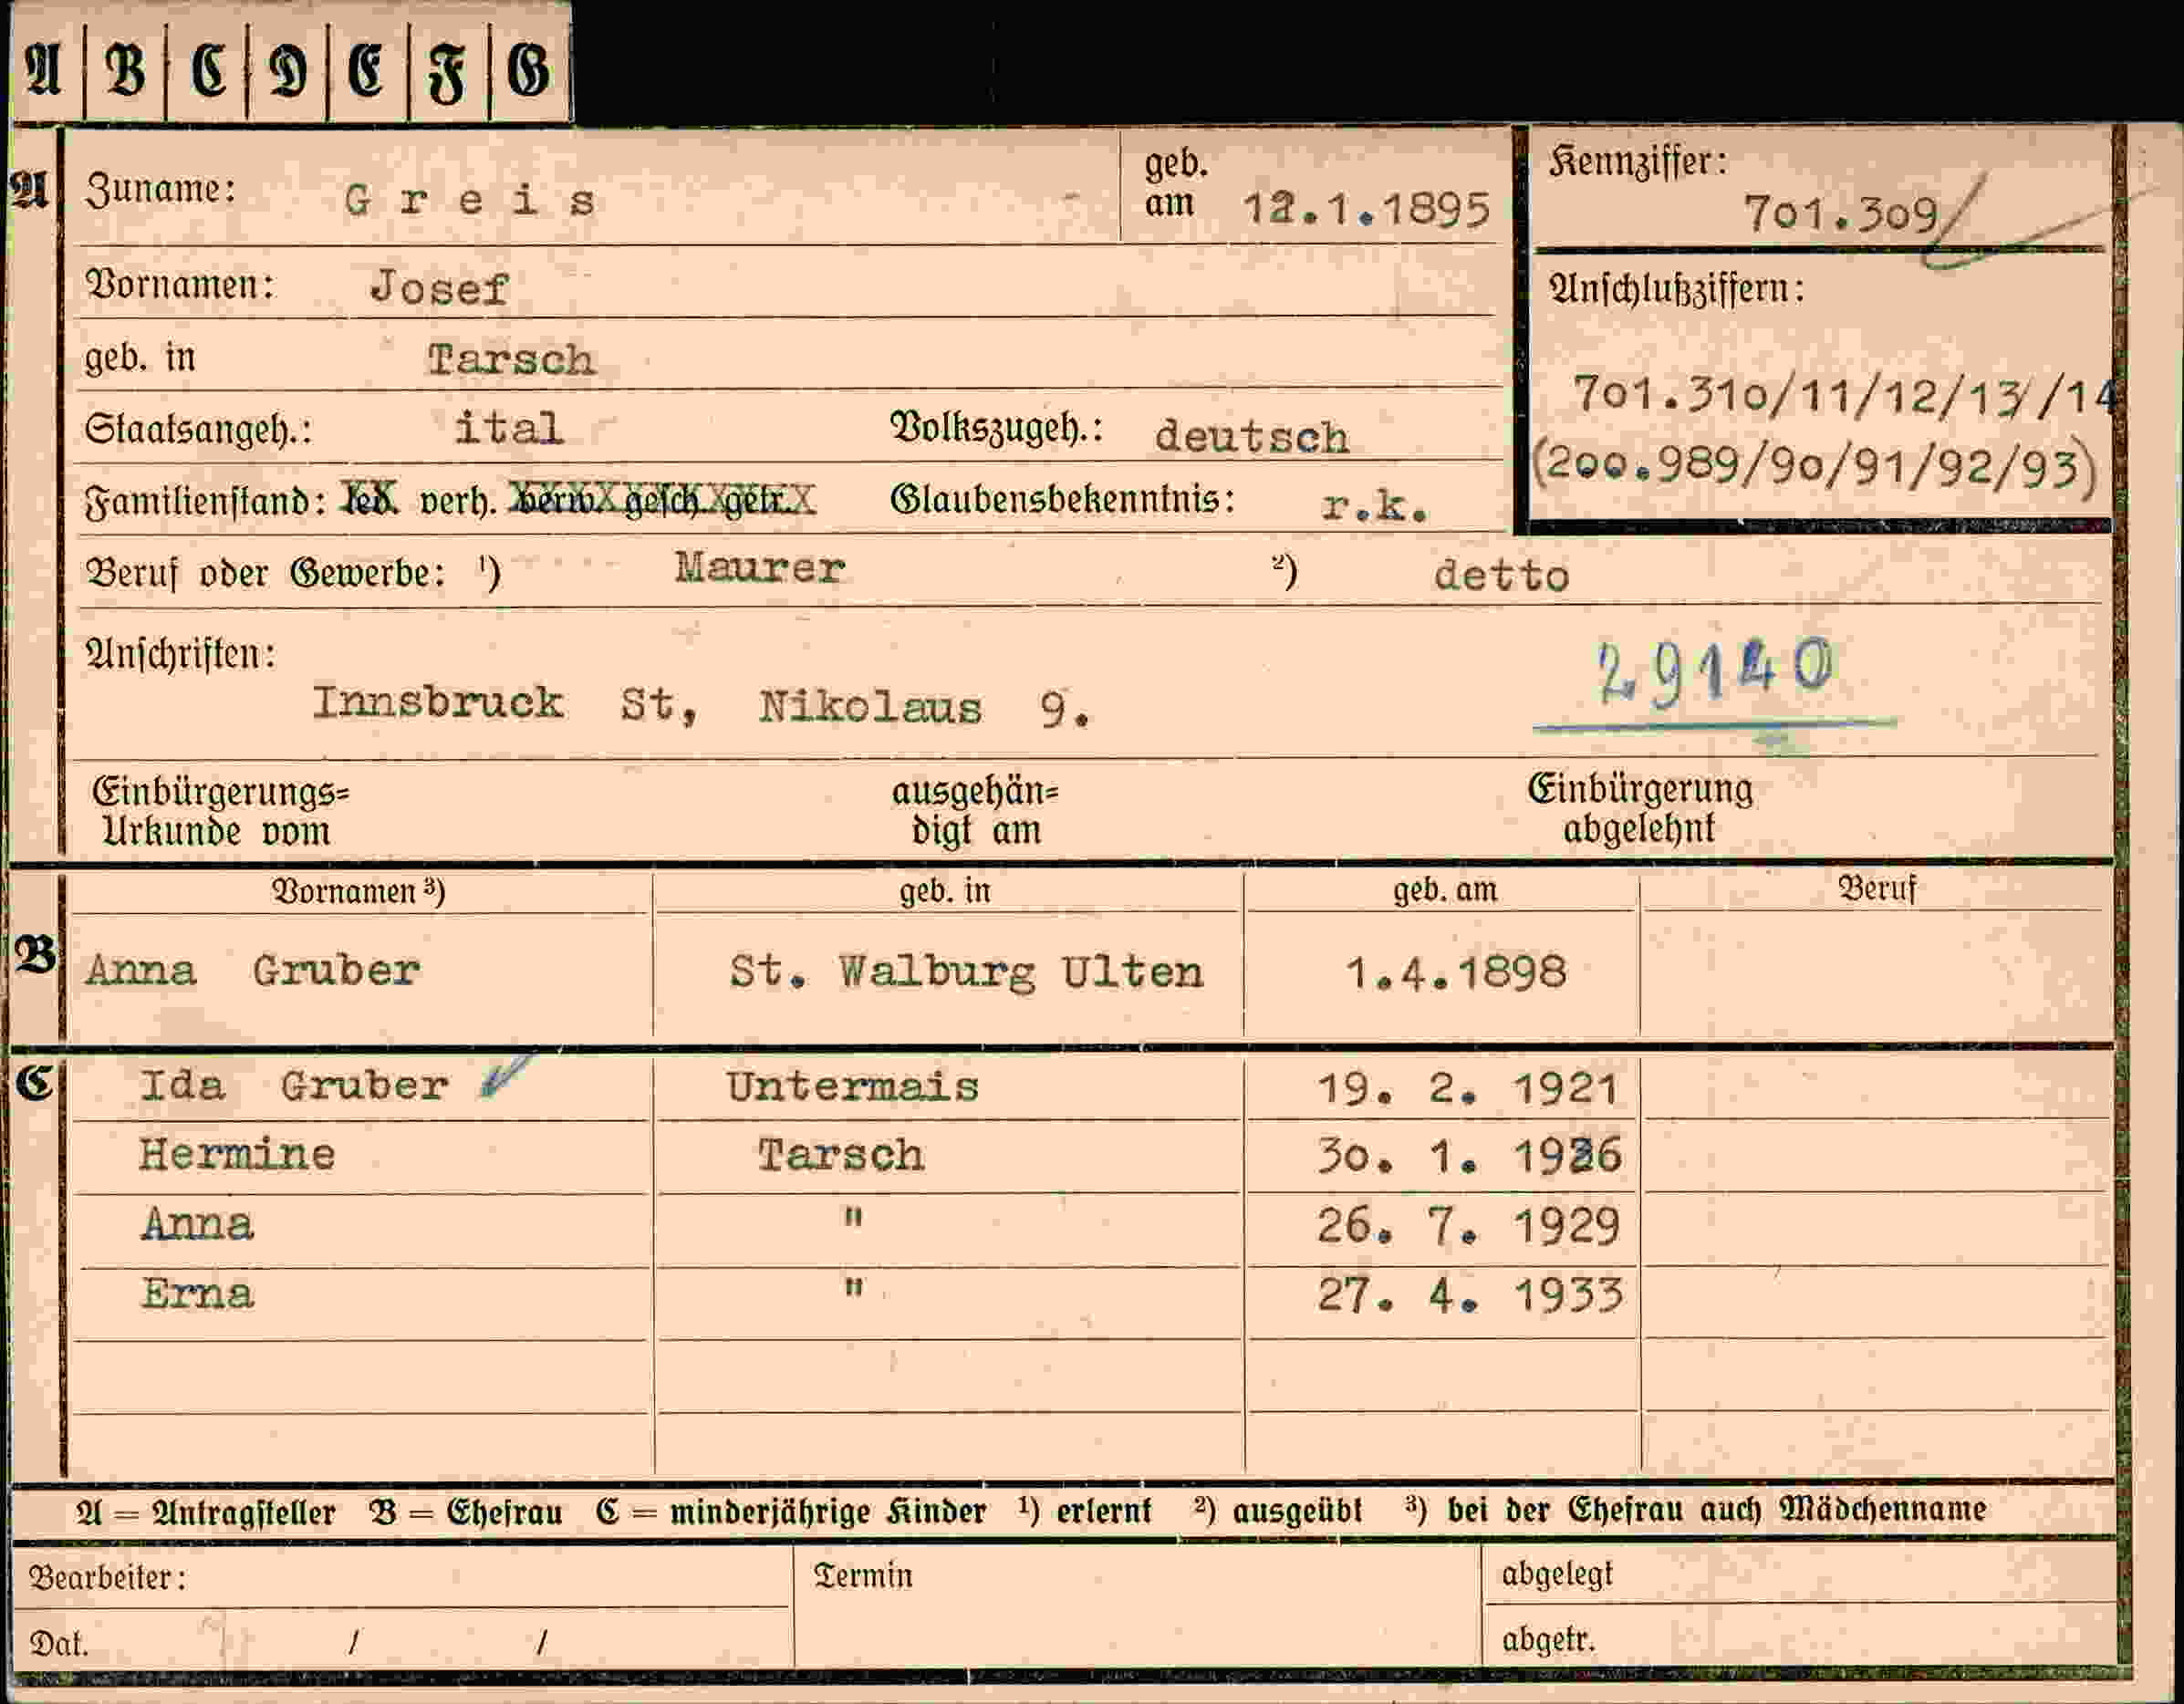 A | B | C | D | E | F | G
A Zuname: Greis geb. am 12.1.1895
Kennziffer: 701.309/
Vornamen: Josef
Anschlußziffern:
geb. in Tarsch
701.310/11/12/13//14
Staatsangeh.: ital Volkszugeh.: deutsch
(200.989/90/91/92/93)
Familienstand: led. verh. verw. gesch. getr. Glaubensbekenntnis: r.k.
Beruf oder Gewerbe: ¹) Maurer ²) detto
Anschriften:
29140
Innsbruck St, Nikolaus 9.
Einbürgerungs= Urkunde vom
ausgehän= digt am
Einbürgerung abgelehnt
Vornamen ³) geb. in geb. am Beruf
B Anna Gruber St. Walburg Ulten 1.4.1898
C Ida Gruber Untermais 19. 2. 1921
Hermine Tarsch 30. 1. 1926
Anna " 26. 7. 1929
Erna " 27. 4. 1933
A = Antragsteller B = Ehefrau C = minderjährige Kinder ¹) erlernt ²) ausgeübt ³) bei der Ehefrau auch Mädchenname
Bearbeiter: Termin abgelegt
Dat. / / abgetr.